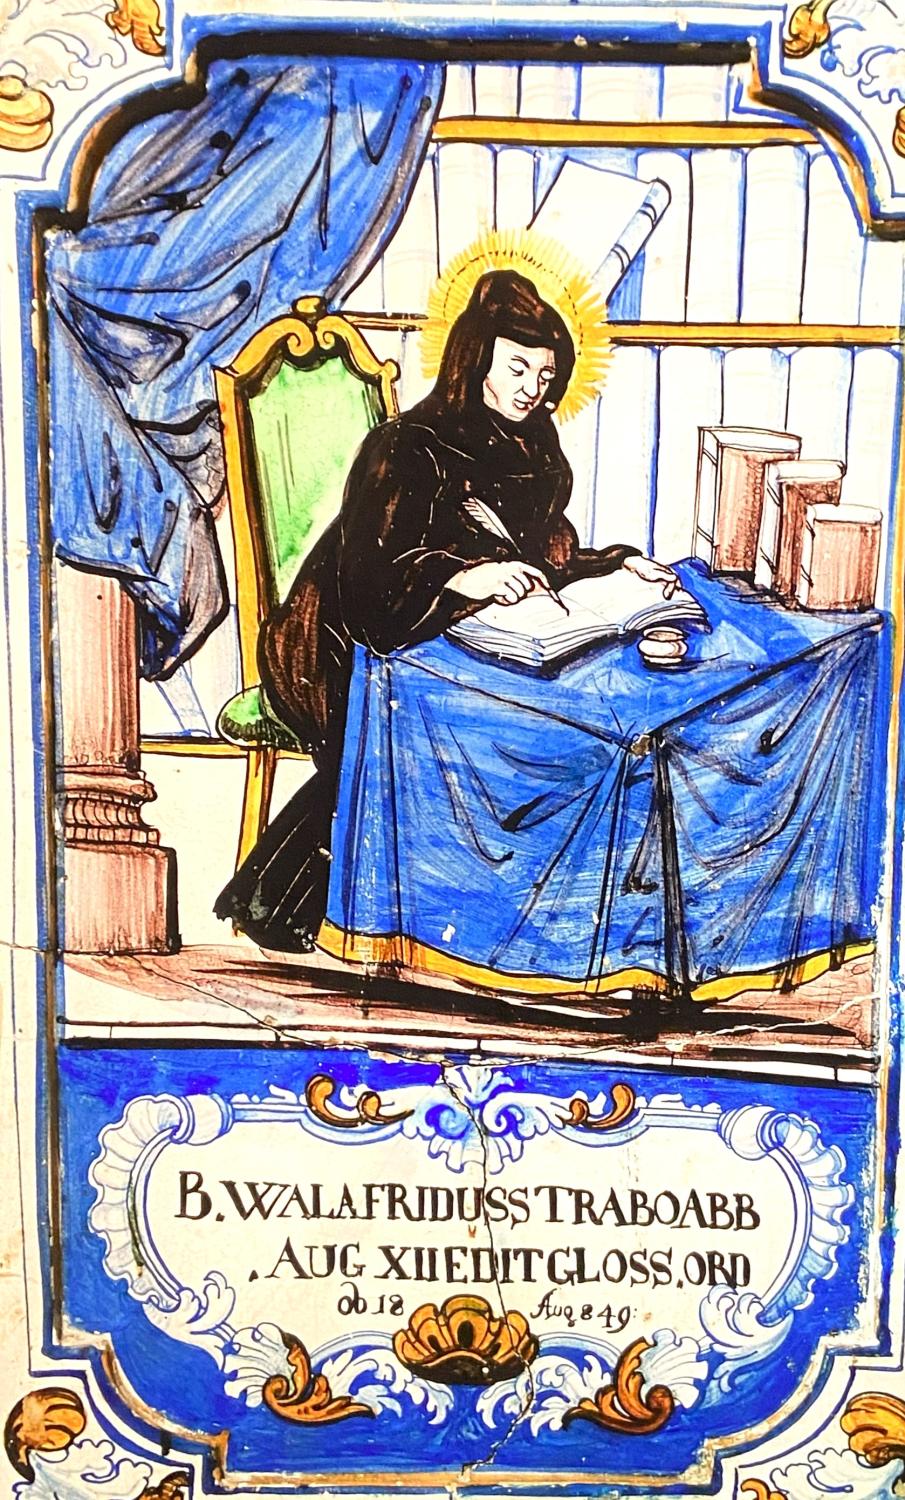 B. WALAFRIDUS STRABO ABB
. AUG XII EDIT GLOSS. ORD
ob 18 Aug 849: